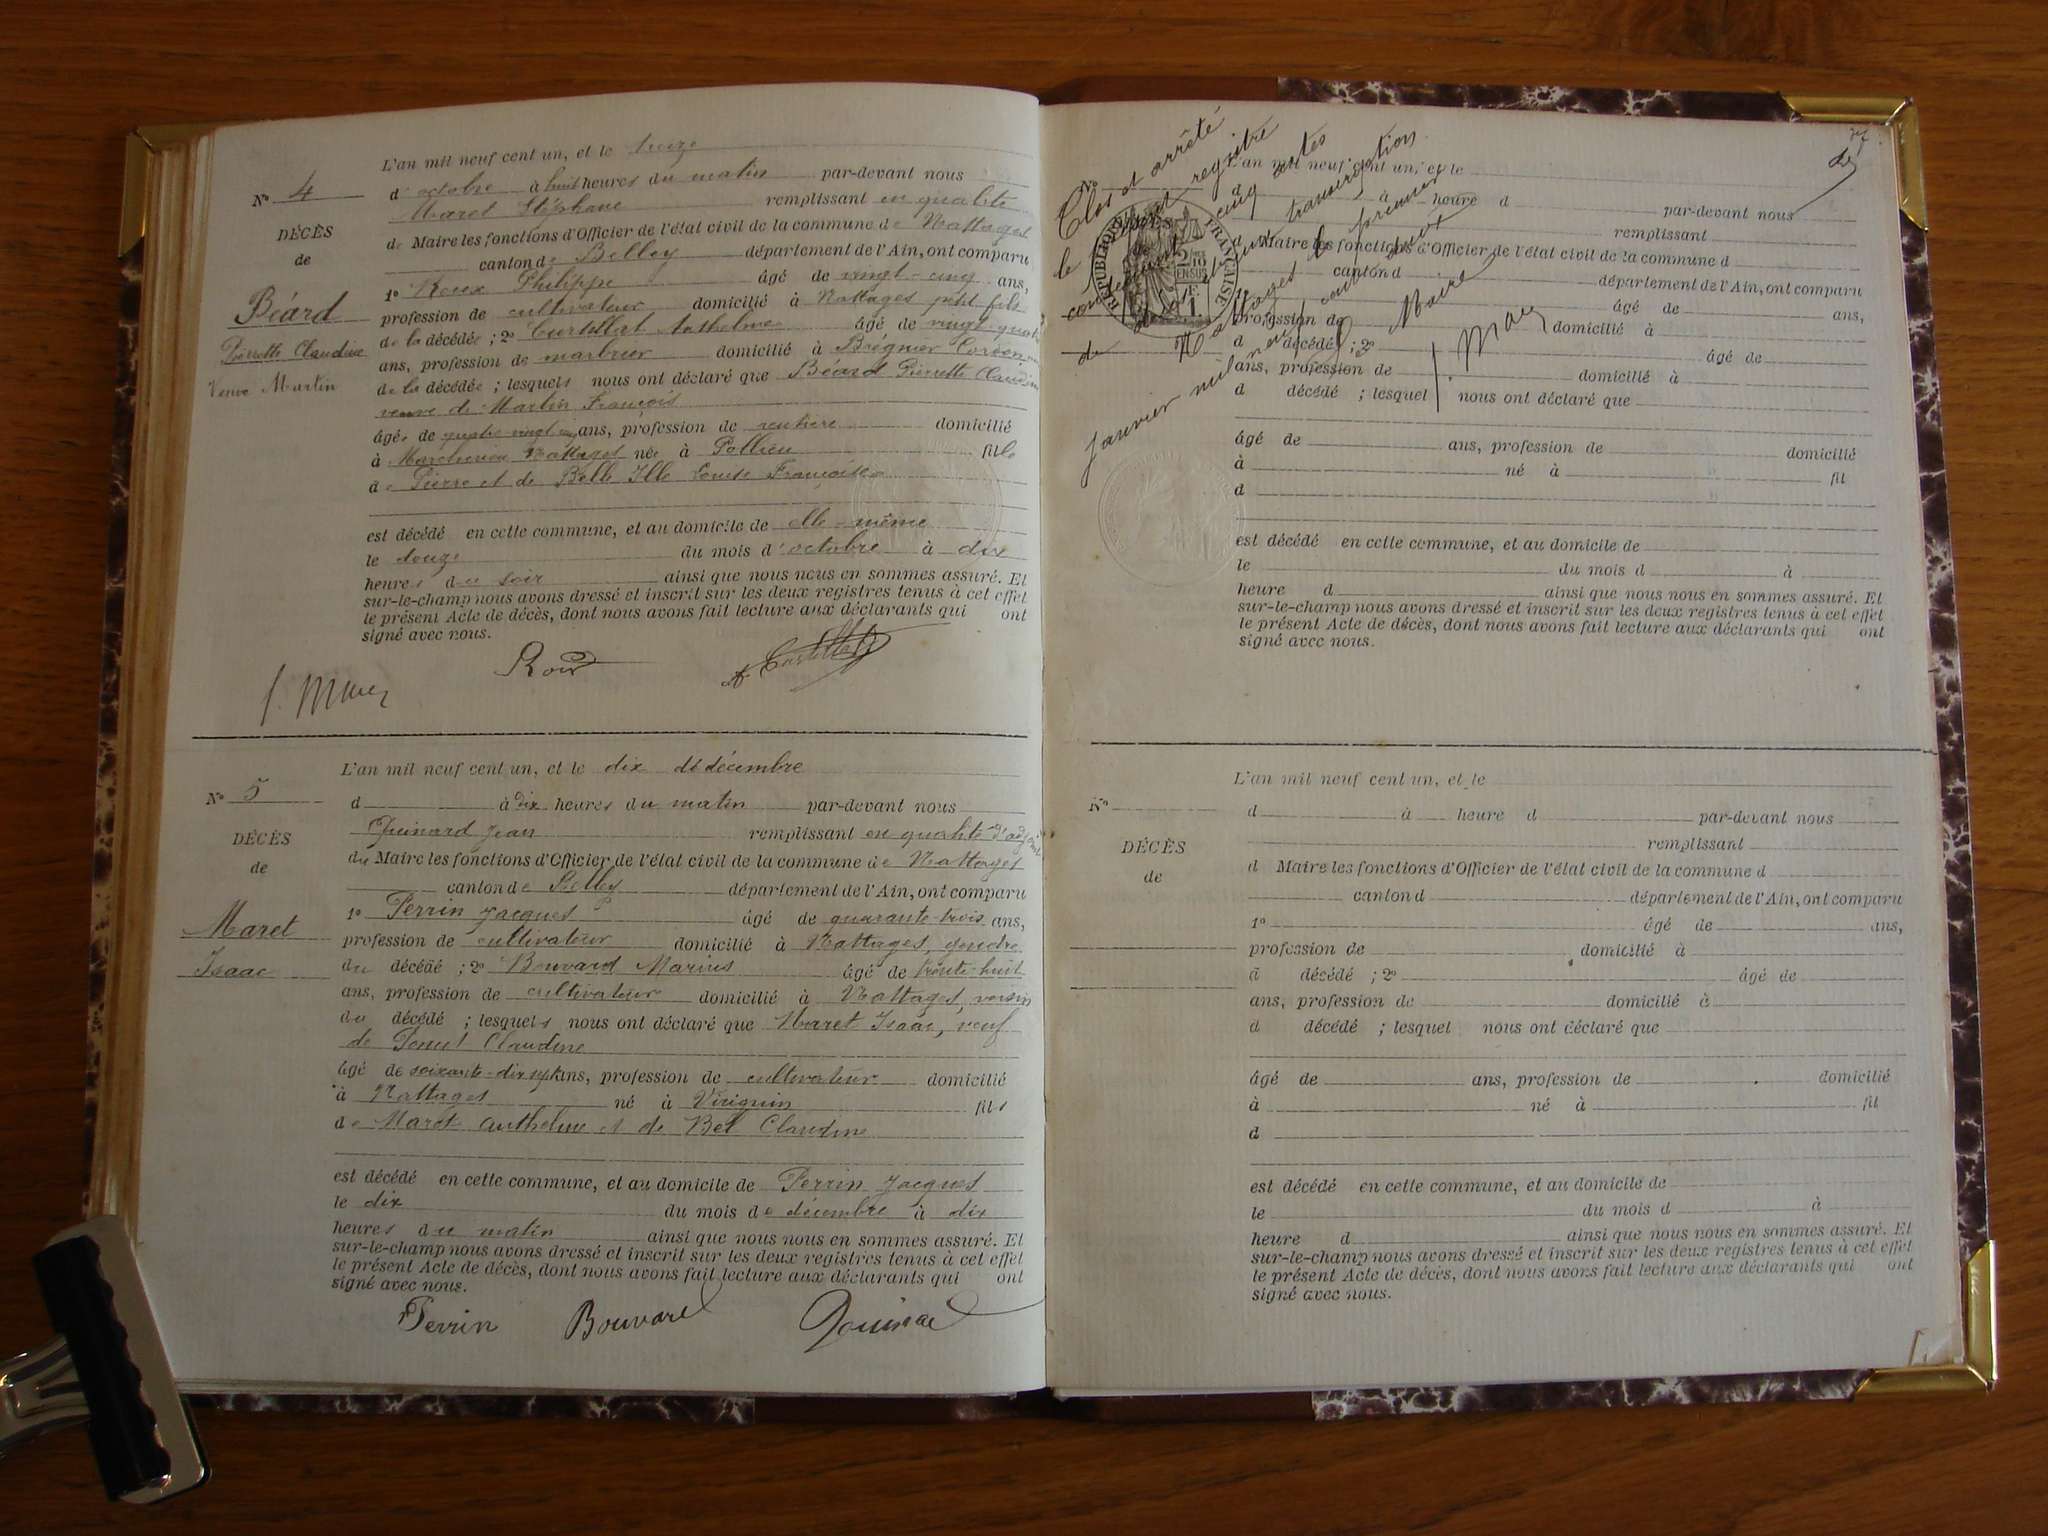 L'an mil neuf cent un, et le treize
d'octobre à huit heures du matin par-devant nous
Maret Stéphane remplissant en qualité
de Maire les fonctions d'Officier de l'état civil de la commune de Nattages
canton de Belley département de l'Ain, ont comparu
1º Roux Philippe âgé de vingt-cinq ans,
profession de cultivateur domicilié à Nattages petit fils
de la décédée ; 2º Curtelliat Anthelme âgé de vingt-quatre
ans, profession de marbrier domicilié à Brégnier Cordon
de la décédée ; lesquels nous ont déclaré que Béard Pierrette Claudine
veuve de Martin François
âgée de quatre-vingt ans, profession de rentière domicilié
à Nattages née à Pollieu fille
de Pierre et de Belle Ille Louise Françoise
est décédé en cette commune, et au domicile de elle-même
le douze du mois d'octobre à dix
heures du soir ainsi que nous nous en sommes assuré. Et
sur-le-champ nous avons dressé et inscrit sur les deux registres tenus à cet effet
le présent Acte de décès, dont nous avons fait lecture aux déclarants qui ont
signé avec nous.
Nº 4
DÉCÈS
de
Béard
Pierrette Claudine
Veuve Martin
Roux
L'an mil neuf cent un, et le dix de décembre
d à dix heures du matin par-devant nous
Guinard Jean remplissant en qualité d'adjoint
du Maire les fonctions d'Officier de l'état civil de la commune de Nattages
canton de Belley département de l'Ain, ont comparu
1º Perrin Jacques âgé de quarante-trois ans,
profession de cultivateur domicilié à Nattages, gendre
du décédé ; 2º Bouvard Marius âgé de trente-huit
ans, profession de cultivateur domicilié à Nattages, voisin
du décédé ; lesquels nous ont déclaré que Maret Isaac, veuf
de Claudine
âgé de soixante-dix sept ans, profession de cultivateur domicilié
à Nattages né à Virignin fils
de Maret Anthelme et de Bel Claudine
est décédé en cette commune, et au domicile de Perrin Jacques
le dix du mois de décembre à dix
heures du matin ainsi que nous nous en sommes assuré. Et
sur-le-champ nous avons dressé et inscrit sur les deux registres tenus à cet effet
le présent Acte de décès, dont nous avons fait lecture aux déclarants qui ont
signé avec nous.
Nº 5
DÉCÈS
de
Maret
Isaac
Perrin Bouvard
Clos et arrêté
le présent registre
contenant cinq actes
et transcription
de Nattages le premier
janvier mil neuf cent deux
Maire
RÉPUBLIQUE FRANÇAISE
Nº
L'an mil neuf cent un, et le
d à heure d par-devant nous
remplissant
d Maire les fonctions d'Officier de l'état civil de la commune d
canton d département de l'Ain, ont comparu
âgé de ans,
profession de domicilié à
d décédé ; 2º âgé de
ans, profession de domicilié à
d décédé ; lesquel nous ont déclaré que
âgé de ans, profession de domicilié
à né à fil
d
est décédé en cette commune, et au domicile de
le du mois d à
heure d ainsi que nous nous en sommes assuré. Et
sur-le-champ nous avons dressé et inscrit sur les deux registres tenus à cet effet
le présent Acte de décès, dont nous avons fait lecture aux déclarants qui ont
signé avec nous.
L'an mil neuf cent un, et le
d à heure d par-devant nous
remplissant
d Maire les fonctions d'Officier de l'état civil de la commune d
canton d département de l'Ain, ont comparu
1º âgé de ans,
profession de domicilié à
d décédé ; 2º âgé de
ans, profession de domicilié à
d décédé ; lesquel nous ont déclaré que
âgé de ans, profession de domicilié
à né à fil
d
est décédé en cette commune, et au domicile de
le du mois d à
heure d ainsi que nous nous en sommes assuré. Et
sur-le-champ nous avons dressé et inscrit sur les deux registres tenus à cet effet
le présent Acte de décès, dont nous avons fait lecture aux déclarants qui ont
signé avec nous.
Nº
DÉCÈS
de